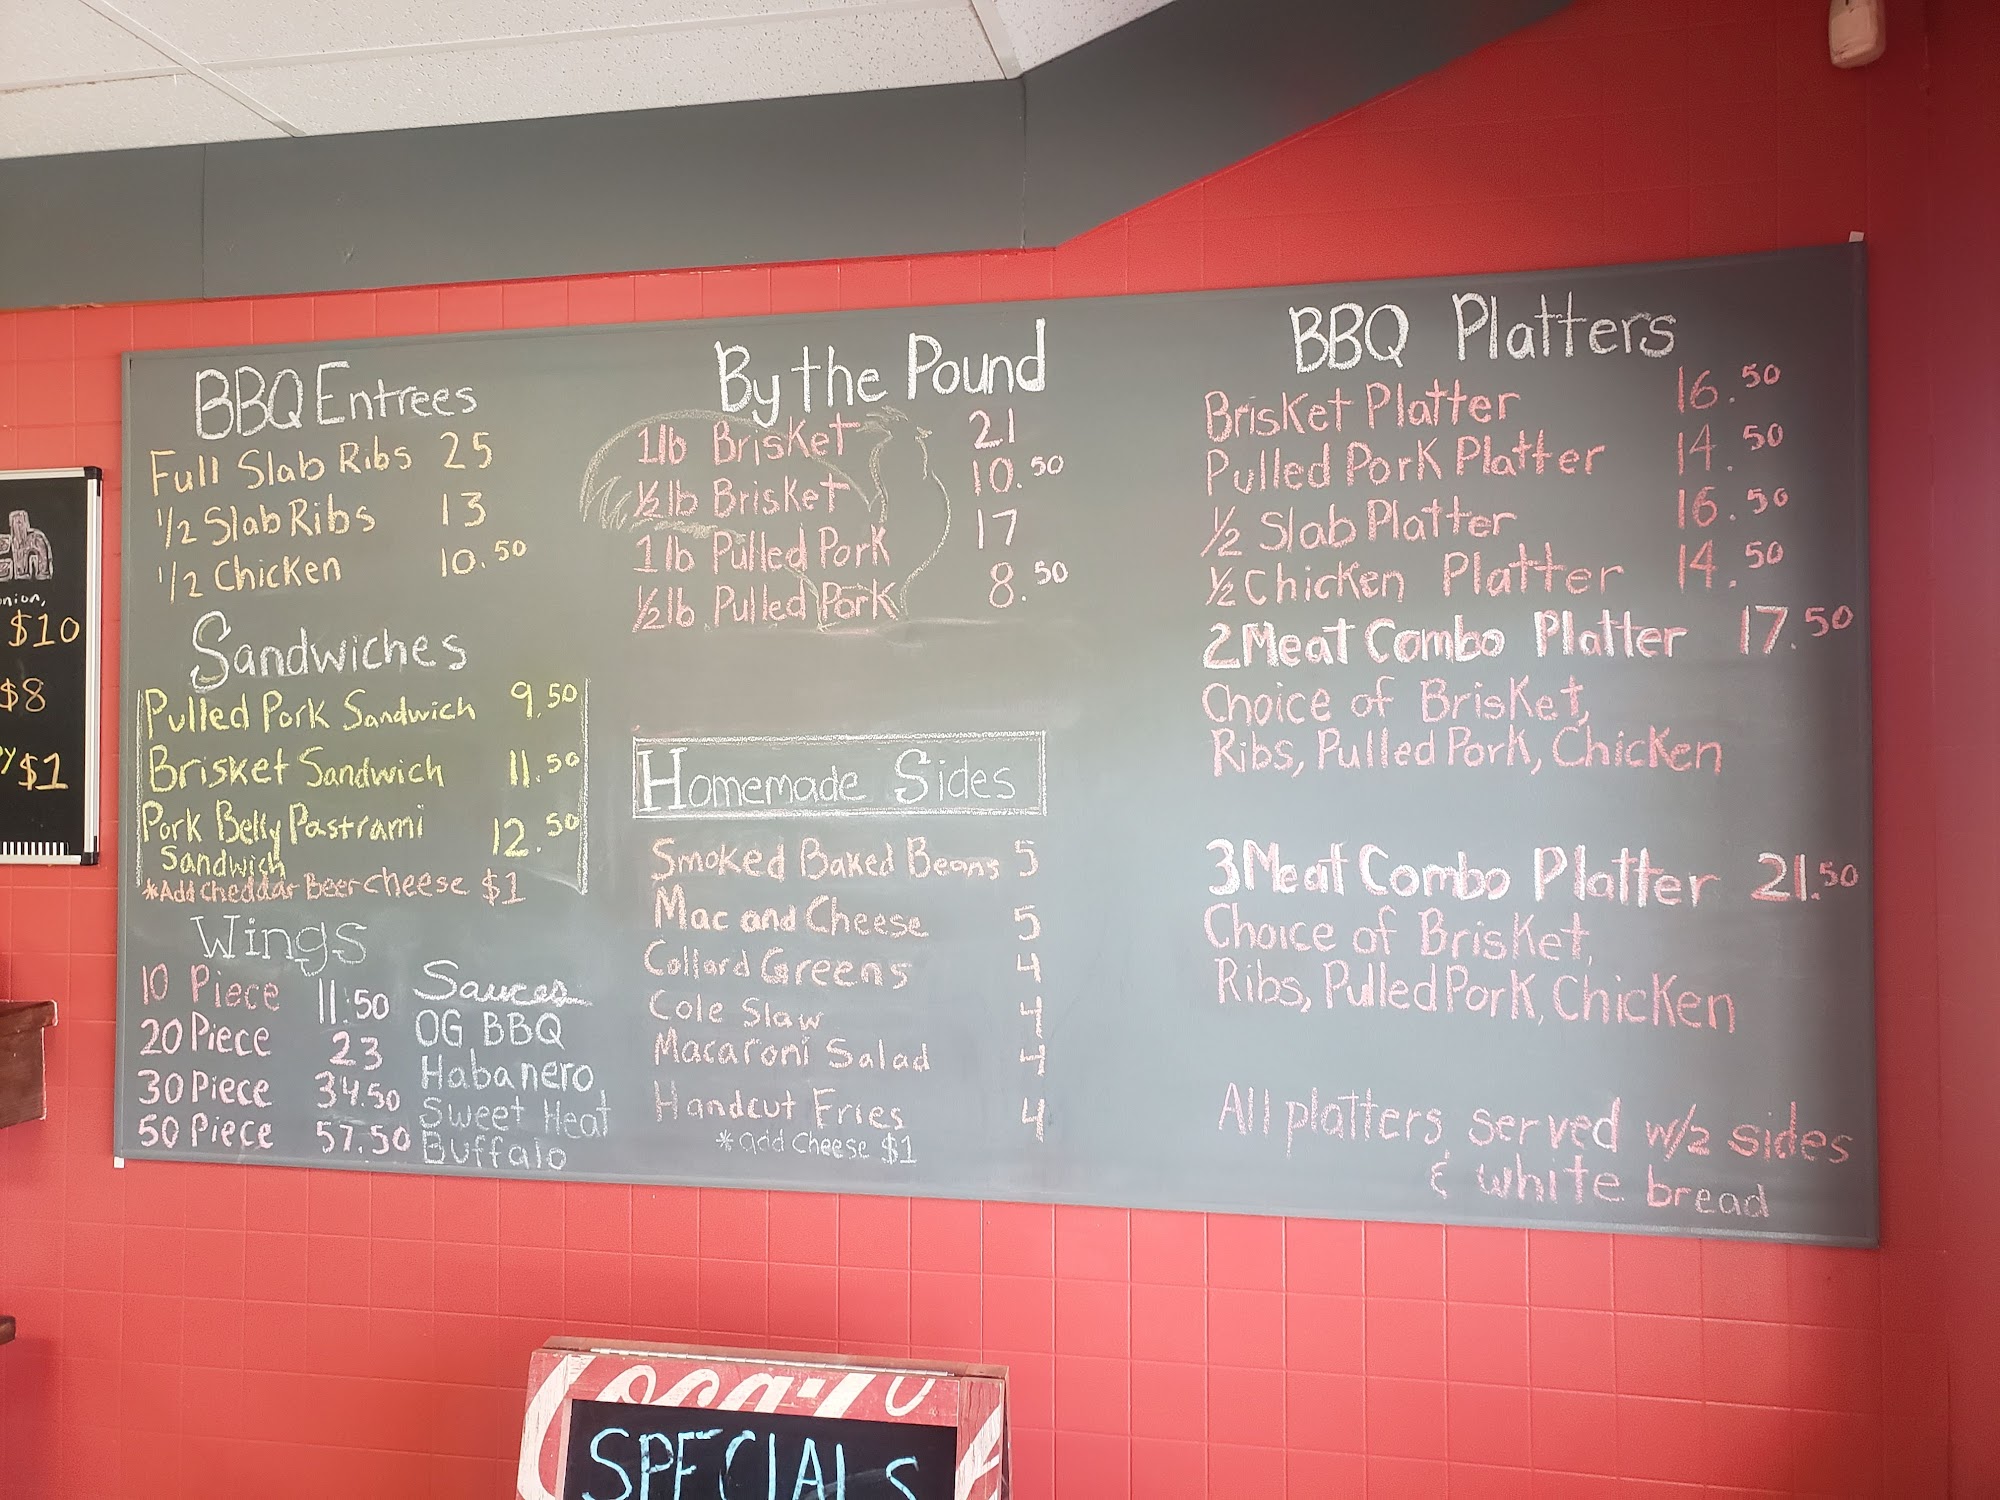 BBQ Entrees
Full Slab Ribs 25
1/2 Slab Ribs 13
1/2 Chicken 10.50
Sandwiches
Pulled Pork Sandwich 9.50
Brisket Sandwich 11.50
Pork Belly Pastrami 12.50
Sandwich
*Add cheddar Beer cheese $1
Wings
10 Piece 11.50
20 Piece 23
30 Piece 34.50
50 Piece 57.50
Sauces
OG BBQ
Habanero
Sweet Heat
Buffalo
By the Pound
1lb Brisket 21
1/2lb Brisket 10.50
1lb Pulled Pork 17
1/2lb Pulled Pork 8.50
Homemade Sides
Smoked Baked Beans 5
Mac and Cheese 5
Collard Greens 4
Cole Slaw 4
Macaroni Salad 4
Handcut Fries 4
*add cheese $1
BBQ Platters
Brisket Platter 16.50
Pulled Pork Platter 14.50
1/2 Slab Platter 16.50
1/2 Chicken Platter 14.50
2 Meat Combo Platter 17.50
Choice of Brisket,
Ribs, Pulled Pork, Chicken
3 Meat Combo Platter 21.50
Choice of Brisket,
Ribs, Pulled Pork, Chicken
All platters served w/2 sides
& white bread
$10
$8
$1
SPECIALS